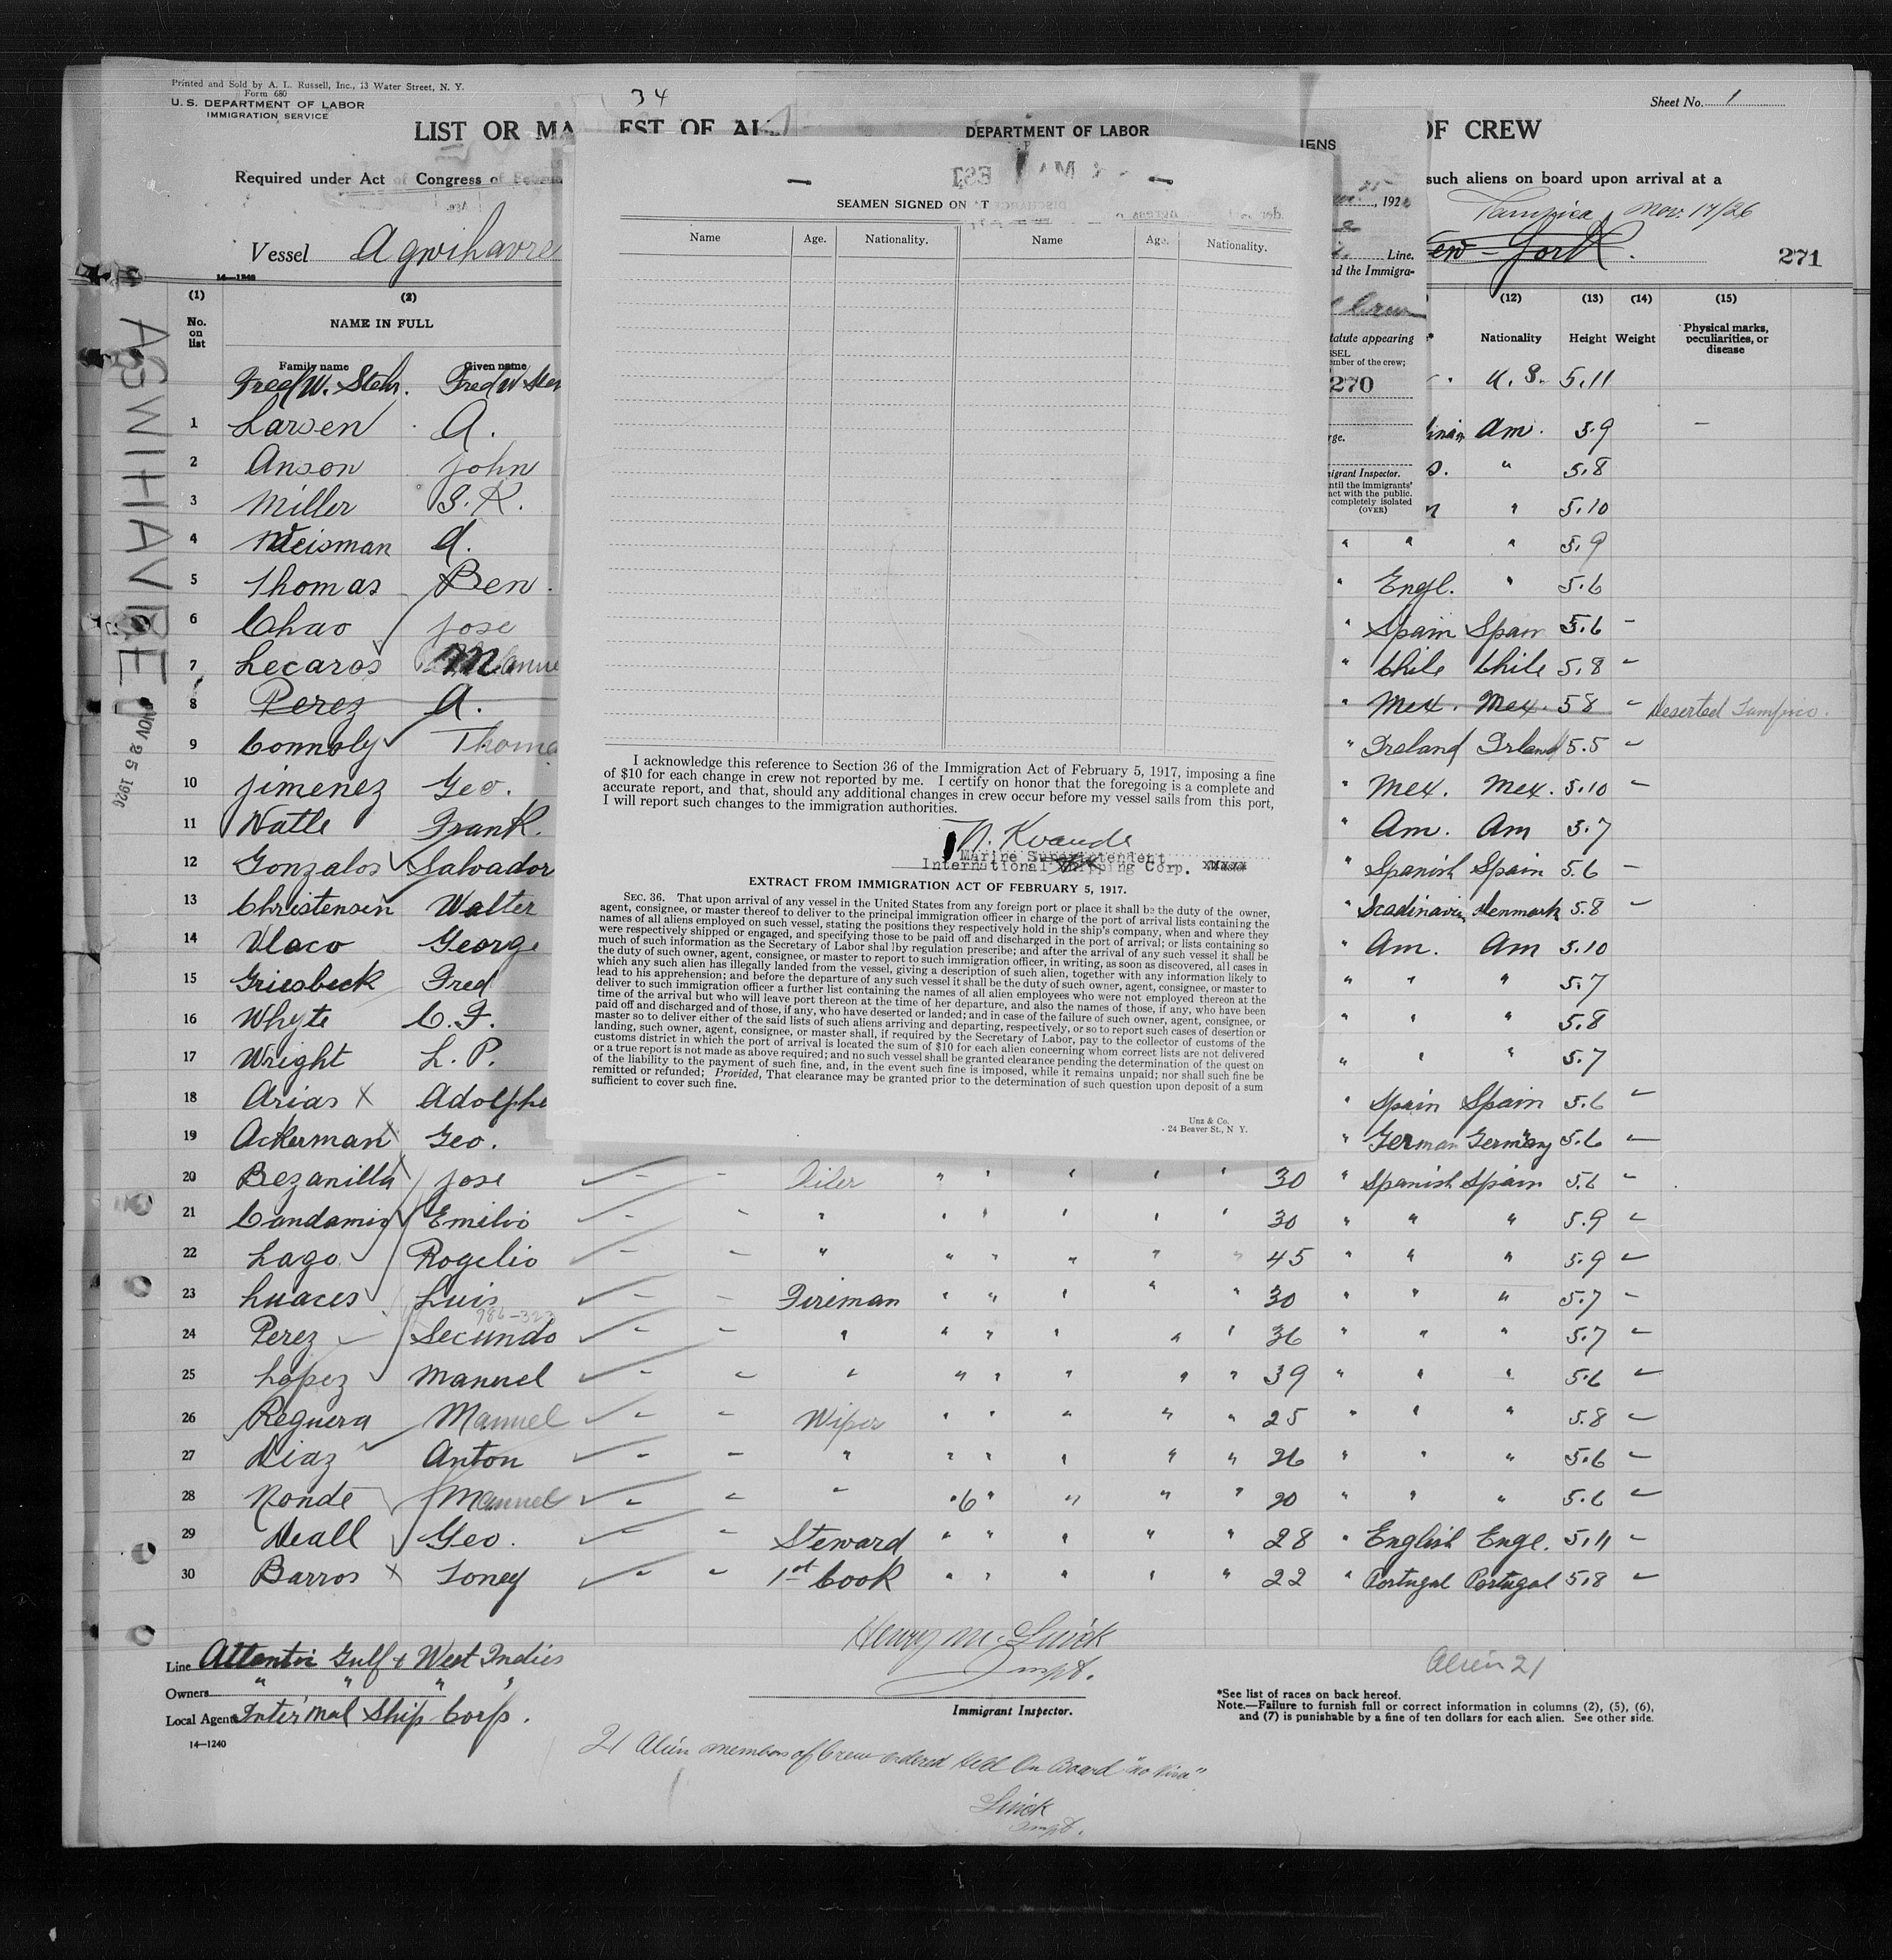 Printed and Sold by A. L. Russell, Inc., 13 Water Street, N. Y.
Form 680
U. S. DEPARTMENT OF LABOR
IMMIGRATION SERVICE
34
Sheet No. 1
LIST OR MA EST OF AL OF CREW
Required under Act of Congress of such aliens on board upon arrival at a
Tampico Nov. 17/26
Vessel Agwihavre ew York. 271
14—1240
AGWIHAVRE
NOV 25 1926
(1) (2) (12) (13) (14) (15)
No. on list NAME IN FULL Nationality Height Weight Physical marks, peculiarities, or disease
Family name Given name
Fred W. Stehr. Fred W U. S. 5.11
1 Larsen A. Am. 5.9 –
2 Anson John " 5.8
3 Miller S. K. " 5.10
4 Weisman A. " " " 5.9
5 Thomas Ben. " Engl. " 5.6
6 Chao Jose " Spain Spain 5.6 –
7 Lecaros Manue " Chile Chile 5.8 –
8 Perez A. " Mex. Mex. 5 8 – Deserted Tampico.
9 Connoly Thoma " Ireland Irland 5.5 –
10 Jimenez Geo. " Mex. Mex. 5.10 –
11 Watle Frank. " Am. Am 5.7
12 Gonzalos Salvador " Spanish Spain 5.6 –
13 Christensen Walter " Scadinavia Denmark 5.8 –
14 Vlaco George " Am. Am 5.10
15 Griesbeck Fred " " " 5.7
16 Whyte C. F. " " " 5.8
17 Wright L. P. " " " 5.7
18 Arias X Adolpho " Spain Spain 5.6 –
19 Ackerman X Geo. " German Germany 5.6 –
20 Bezanilla Jose – – Oiler " " " " " 30 " Spanish Spain 5.6 –
21 Candamio Emilio – – " " " " " " 30 " " " 5.9 –
22 Lago Rogelio – – " " " " " " 45 " " " 5.9 –
23 Luaces Luis – – Fireman " " " " " 30 " " " 5.7 –
986-323
24 Perez Secundo – – " " " " " " 36 " " " 5.7 –
25 Lopez Manuel – – " " " " " " 39 " " " 5.6 –
26 Reguera Manuel – – Wiper " " " " " 25 " " " 5.8 –
27 Diaz Anton – – " " " " " " 26 " " " 5.6 –
28 Conde Manuel – – " " 6 " " " " 20 " " " 5.6 –
29 Neall Geo. – – Steward " " " " " 28 " English Engl. 5.11 –
30 Barros X Toney – – 1st Cook " " " " " 22 " Portugal Portugal 5.8 –
Line Atlantic Gulf & West Indies
Owners " " " "
Local Agents Inter'nal Ship Corp.
14—1240
Henry M. Linck
Insp't.
Immigrant Inspector.
Alien 21
*See list of races on back hereof.
Note.—Failure to furnish full or correct information in columns (2), (5), (6),
and (7) is punishable by a fine of ten dollars for each alien. See other side.
21 Alien members of Crew ordered Held On Board "no Visa"
Linck
Insp't.
DEPARTMENT OF LABOR
SEAMEN SIGNED ON AT
Name Age. Nationality. Name Age. Nationality.
I acknowledge this reference to Section 36 of the Immigration Act of February 5, 1917, imposing a fine
of $10 for each change in crew not reported by me. I certify on honor that the foregoing is a complete and
accurate report, and that, should any additional changes in crew occur before my vessel sails from this port,
I will report such changes to the immigration authorities.
N. Kvande
Marine Superintendent
International Shipping Corp.
EXTRACT FROM IMMIGRATION ACT OF FEBRUARY 5, 1917.
SEC. 36. That upon arrival of any vessel in the United States from any foreign port or place it shall be the duty of the owner,
agent, consignee, or master thereof to deliver to the principal immigration officer in charge of the port of arrival lists containing the
names of all aliens employed on such vessel, stating the positions they respectively hold in the ship's company, when and where they
were respectively shipped or engaged, and specifying those to be paid off and discharged in the port of arrival; or lists containing so
much of such information as the Secretary of Labor shall by regulation prescribe; and after the arrival of any such vessel it shall be
the duty of such owner, agent, consignee, or master to report to such immigration officer, in writing, as soon as discovered, all cases in
which any such alien has illegally landed from the vessel, giving a description of such alien, together with any information likely to
lead to his apprehension; and before the departure of any such vessel it shall be the duty of such owner, agent, consignee, or master to
deliver to such immigration officer a further list containing the names of all alien employees who were not employed thereon at the
time of the arrival but who will leave port thereon at the time of her departure, and also the names of those, if any, who have been
paid off and discharged and of those, if any, who have deserted or landed; and in case of the failure of such owner, agent, consignee, or
master so to deliver either of the said lists of such aliens arriving and departing, respectively, or so to report such cases of desertion or
landing, such owner, agent, consignee, or master shall, if required by the Secretary of Labor, pay to the collector of customs of the
customs district in which the port of arrival is located the sum of $10 for each alien concerning whom correct lists are not delivered
or a true report is not made as above required; and no such vessel shall be granted clearance pending the determination of the quest on
of the liability to the payment of such fine, and, in the event such fine is imposed, while it remains unpaid; nor shall such fine be
remitted or refunded; Provided, That clearance may be granted prior to the determination of such question upon deposit of a sum
sufficient to cover such fine.
Unz & Co.
24 Beaver St., N Y.
IENS
, 192
Line.
nd the Immigra-
Crew
tatute appearing
SSEL
ember of the crew;
270
rge.
migrant Inspector.
ntil the immigrants'
act with the public.
completely isolated
(OVER)